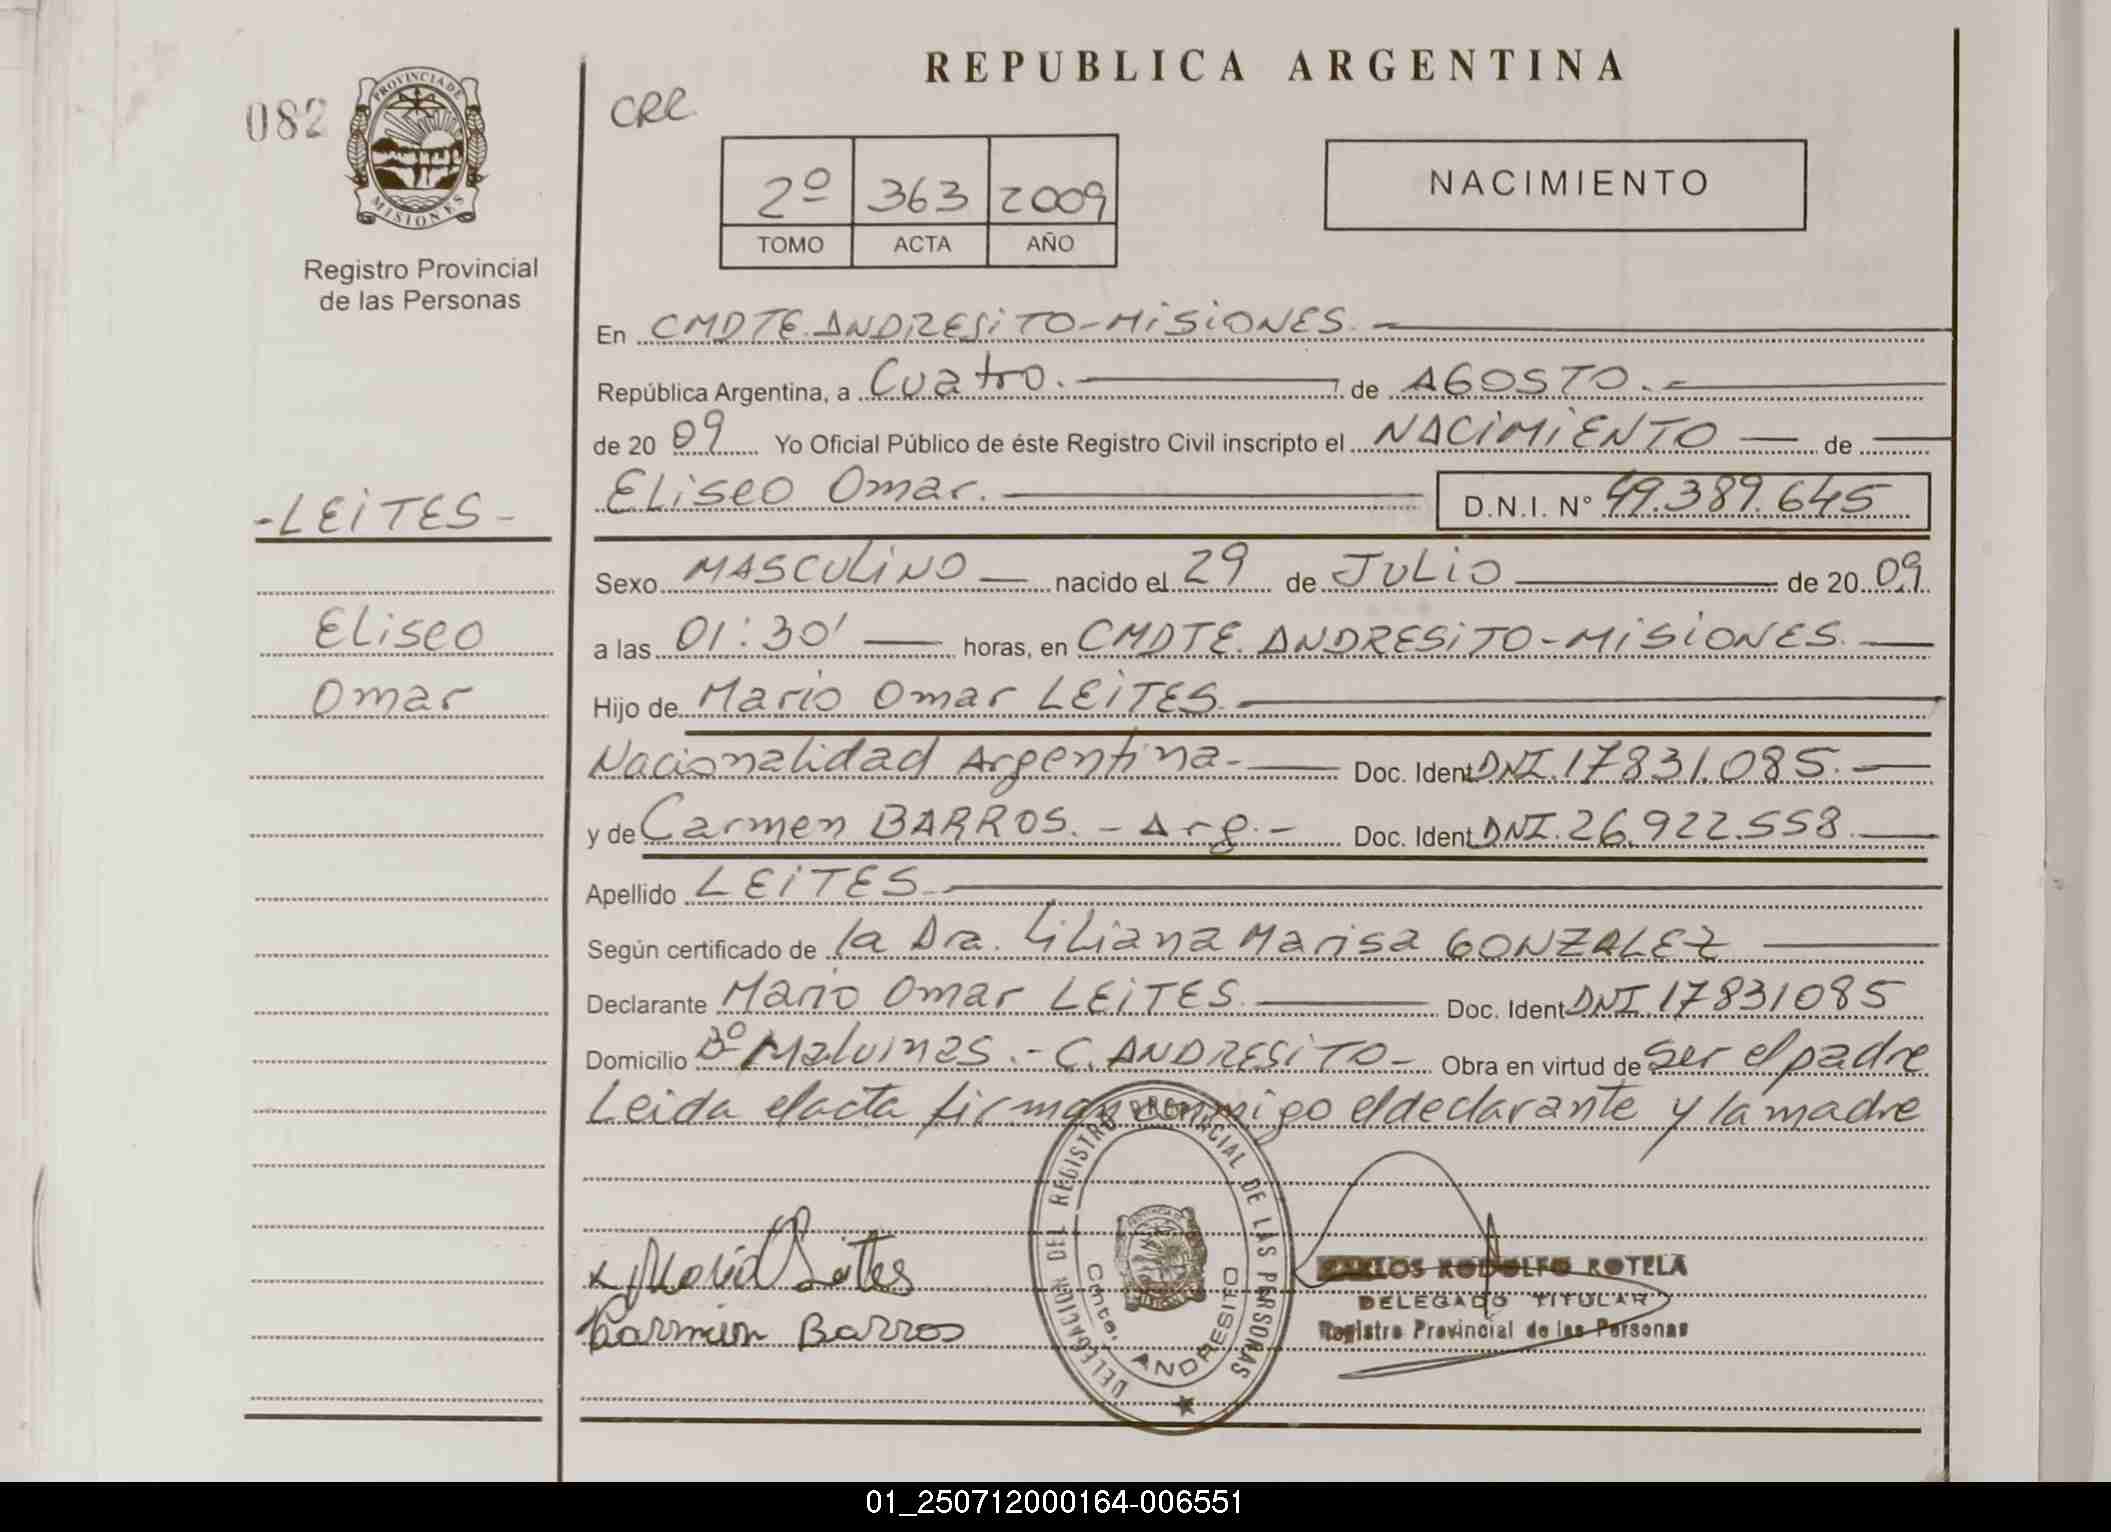 REPUBLICA ARGENTINA
082
PROVINCIA DE MISIONES
CRC
Registro Provincial
de las Personas
2º 363 2009
TOMO ACTA AÑO
NACIMIENTO
En CMDTE. ANDRESITO-MISIONES.
República Argentina, a Cuatro. de AGOSTO.
de 20 09 Yo Oficial Público de éste Registro Civil inscripto el NACIMIENTO de
Eliseo Omar. D.N.I. Nº 49.389.645
-LEITES-
Eliseo
Omar
Sexo MASCULINO nacido el 29 de JULIO de 20 09
a las 01:30' horas, en CMDTE. ANDRESITO-MISIONES.
Hijo de Mario Omar LEITES.
Nacionalidad Argentina- Doc. Ident DNI.17831.085.
y de Carmen BARROS. - Arg.- Doc. Ident DNI.26.922.558.
Apellido LEITES.
Según certificado de la Dra. Liliana Marisa GONZALEZ
Declarante Mario Omar LEITES. Doc. Ident DNI.17831085
Domicilio Bº Malvinas.- C. ANDRESITO- Obra en virtud de ser el padre
Leida el acta firman conmigo el declarante y la madre
DELEGACION DEL REGISTRO PROVINCIAL DE LAS PERSONAS
Cmte. ANDRESITO
x Mario Leites
Carmen Barros
CARLOS RODOLFO ROTELA
DELEGADO TITULAR
Registro Provincial de las Personas
01_250712000164-006551